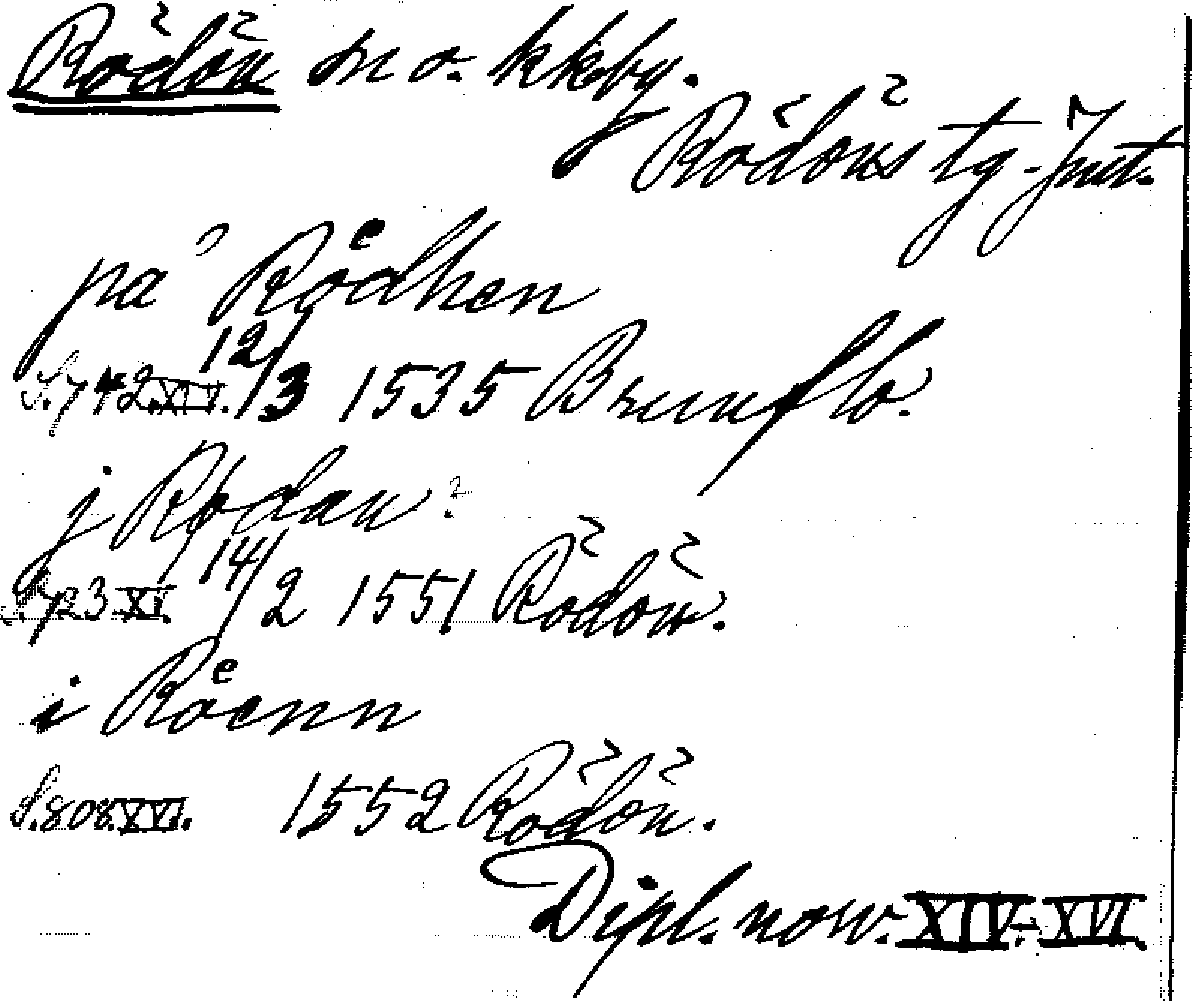 Rödön sn o. kkby.
Rödöns tg. Jmt.
på Rödhen
S. 742 XIV. 12/3 1535 Brunflo.
j Rødan
S. 723 XI. 14/2 1551 Rödön.
i Röenn
S. 808 XVI. 1552 Rödön.
Dipl. norv. XIV-XVI.